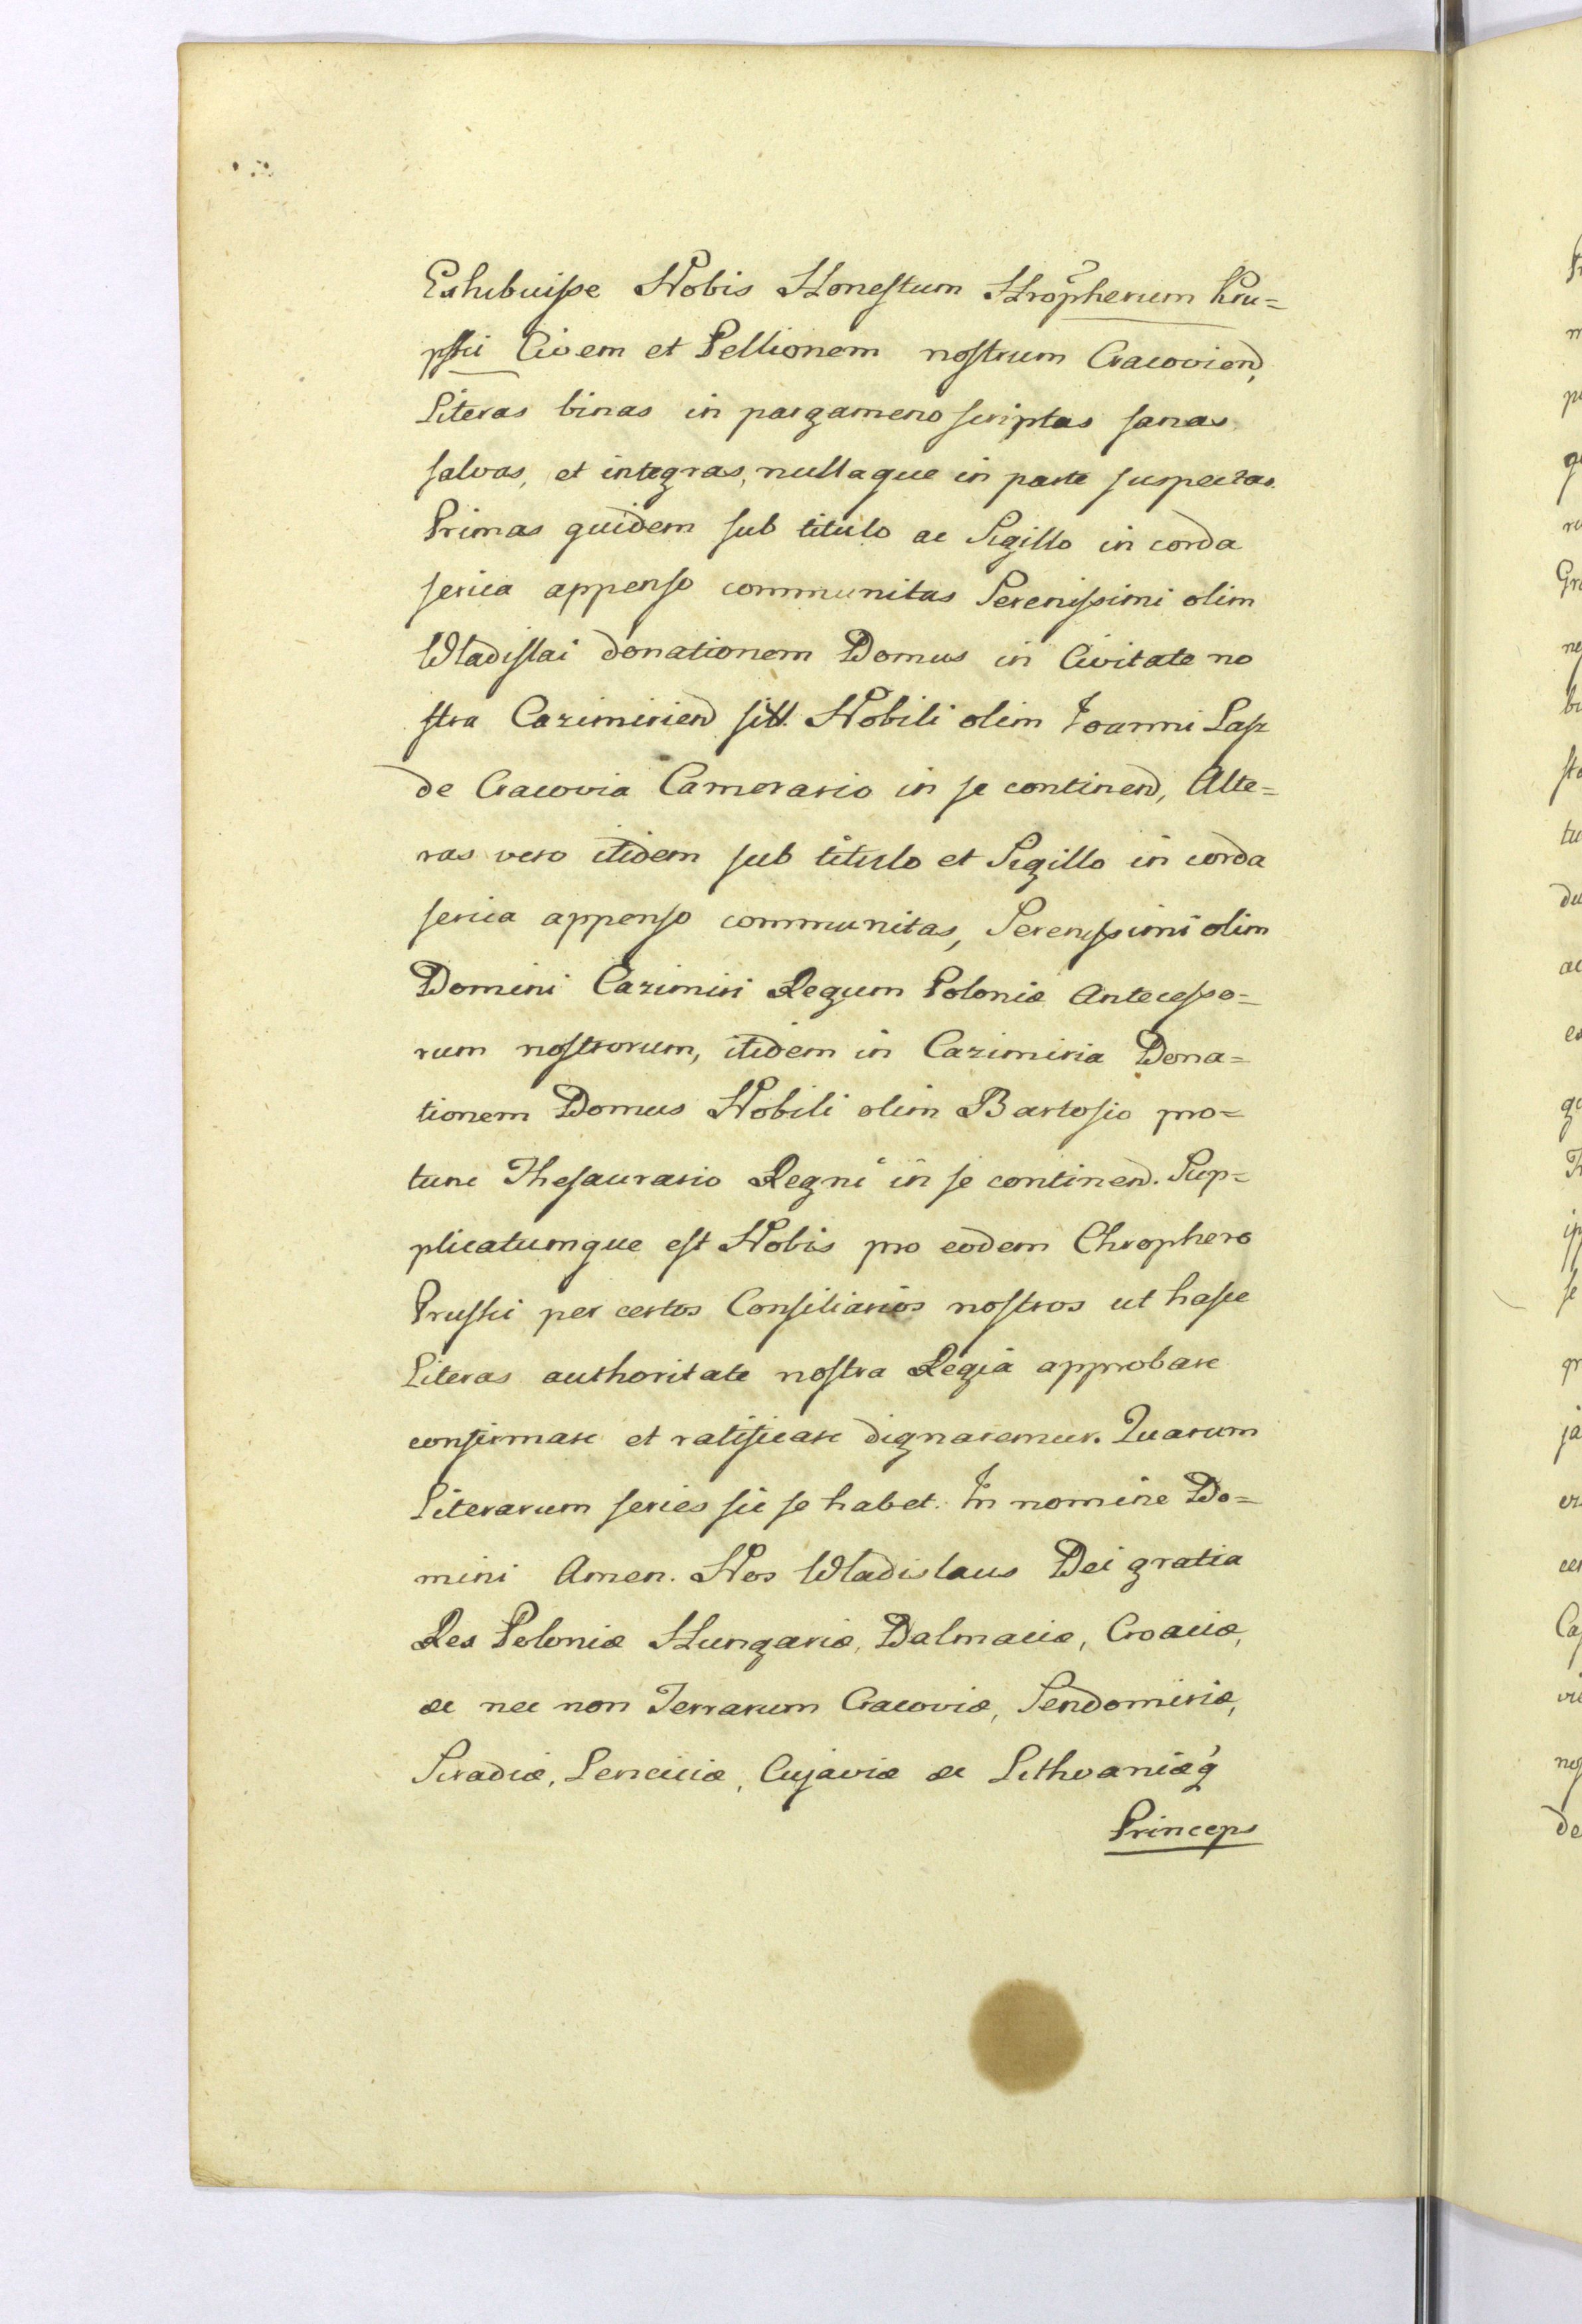 Exhibuisse Nobis Honestum Hropherum Kru=
pski Civem et Pellionem nostrum Cracoviend,
Literas binas in pargameno scriptas sanas
salvas, et integras, nullaque in parte suspectas.
Primas quidem sub titulo ac Sigillo in corda
serica appenso communitas Serenissimi olim
Wladislai donationem Domus in Civitate no
stra Cazimiriend sitt. Nobili olim Joanni Lasz
de Cracovia Camerario in se continend, Alte=
ras vero itidem sub titulo et Sigillo in corda
serica appenso communitas, Serenissimi olim
Domini Cazimiri Regum Poloniæ Antecesso=
rum nostrorum, itidem in Cazimiria Dona=
tionem Domus Nobili olim Bartosio pro=
tunc Thesaurario Regni in se continend. Sup=
plicatumque est Nobis pro eodem Chrophero
Pruski per certos Consiliarios nostros ut hasce
Literas authoritate nostra Regia approbare
confirmare et ratificare dignaremur. Quarum
Literarum series sic se habet. In nomine Do=
mini Amen. Nos Wladislaus Dei gratia
Rex Poloniæ Hungariæ, Dalmaciæ, Croaciæ,
ac nec non Terrarum Cracoviæ, Sendomiriæ,
Siradiæ, Lenciciæ, Cujaviæ ac Lithvaniæq́
Princeps